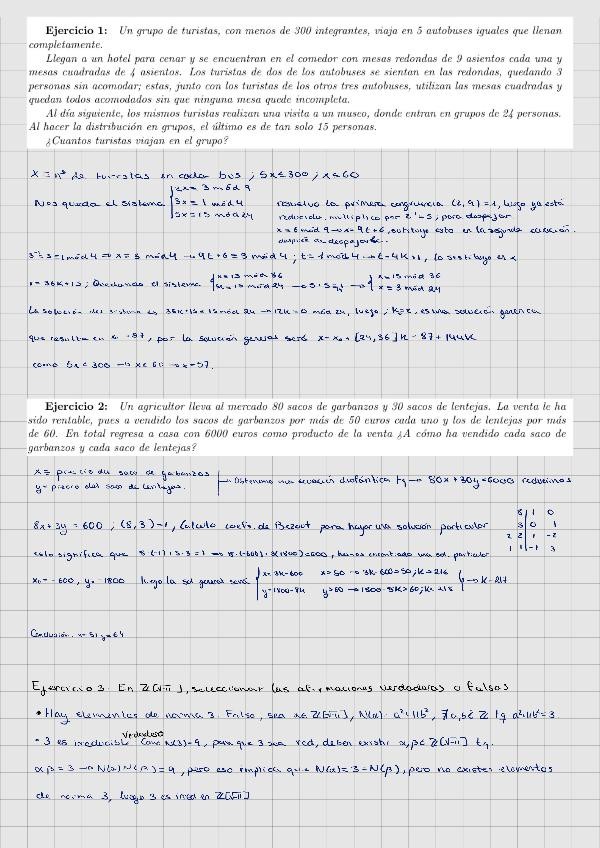 Ejercicio 1: Un grupo de turistas, con menos de 300 integrantes, viaja en 5 autobuses iguales que llenan
completamente.
Llegan a un hotel para cenar y se encuentran en el comedor con mesas redondas de 9 asientos cada una y
mesas cuadradas de 4 asientos. Los turistas de dos de los autobuses se sientan en las redondas, quedando 3
personas sin acomodar; estas, junto con los turistas de los otros tres autobuses, utilizan las mesas cuadradas y
quedan todos acomodados sin que ninguna mesa quede incompleta.
Al día siguiente, los mismos turistas realizan una visita a un museo, donde entran en grupos de 24 personas.
Al hacer la distribución en grupos, el último es de tan solo 15 personas.
¿Cuantos turistas viajan en el grupo?
X = nº de turistas en cada bus ; 5x≤300 ; x≤60
Nos queda el sistema { 2x ≡ 3 mód 9
3x ≡ 1 mód 4
5x ≡ 15 mód 24
resuelvo la primera congruencia (2,9)=1, luego ya está
reducida, multiplico por 2⁻¹=5, para despejar
x = 6 mód 9 → x = 9t+6, sustituyo esto en la segunda ecuación
después de despejarla.
3⁻¹=3 mód 4 ⇒ x ≡ 3 mód 4 → 9t+6 ≡ 3 mód 4 ; t ≡ 1 mód 4 → t=4k+1, lo sustituyo en x
x = 36k+15 ; Quedando el sistema { x ≡ 15 mód 36
5x ≡ 15 mód 24 → { x ≡ 15 mód 36
x ≡ 3 mód 24
La solución del sistema es 36k+15 ≡ 15 mód 24 → 12k ≡ 0 mód 24, luego ; k=2, es una solución
que resulta en x₀ = 87, por la solución general será x = x₀ + [24,36]k = 87+144k
como 5x < 300 → x < 60 → x=57.
Ejercicio 2: Un agricultor lleva al mercado 80 sacos de garbanzos y 30 sacos de lentejas. La venta le ha
sido rentable, pues a vendido los sacos de garbanzos por más de 50 euros cada uno y los de lentejas por más
de 60. En total regresa a casa con 6000 euros como producto de la venta ¿A cómo ha vendido cada saco de
garbanzos y cada saco de lentejas?
x = precio del saco de garbanzos
y = precio del saco de lentejas. Obtenemos una ecuación diofántica tq → 80x+30y=6000 reducimos
8x+3y = 600 ; (8,3)=1, Calculo coefs. de Bezout para hayar una solución particular
8 1 0
3 0 1
2 2 1 -2
1 1 -1 3
esto significa que 8·(-1)+3·3 = 1 → 8·(-600)+3(1800)=600, hemos encontrado una sol. particular
x₀ = -600, y₀ = 1800 luego la sol general será { x = 3k-600 x>50 → 3k-600>50 ; k>216
y = 1800-8k y>60 → 1800-8k>60 ; k<218 } → k=217
Conclusión. x=51 y=64
Ejercicio 3. En Z[√-11], seleccionar las afirmaciones verdaderas o falsas
• Hay elementos de norma 3. Falso, sea α∈Z[√-11], N(α)=a²+11b², ∄a,b∈Z tq a²+11b²=3.
• 3 es irreducible Verdadero Como N(3)=9, para que 3 sea red, deben existir α,β∈Z[√-11] tq.
αβ=3 → N(α)N(β)=9, pero eso implica que N(α)=3=N(β), pero no existen elementos
de norma 3, luego 3 es irred en Z[√-11]